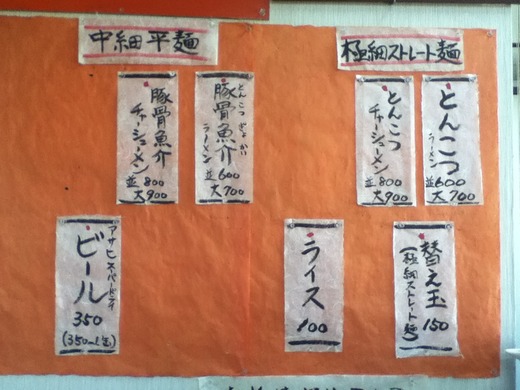 極細ストレート麺
とんこつ
ラーメン
並600
大700
とんこつ
チャーシューメン
並800
大900
中細平麺
とんこつぎょかい
豚骨魚介
ラーメン
並600
大700
豚骨魚介
チャーシューメン
並800
大900
替え玉
(極細ストレート麺)
150
ライス
100
アサヒスーパードライ
ビール
350
(350ml缶)